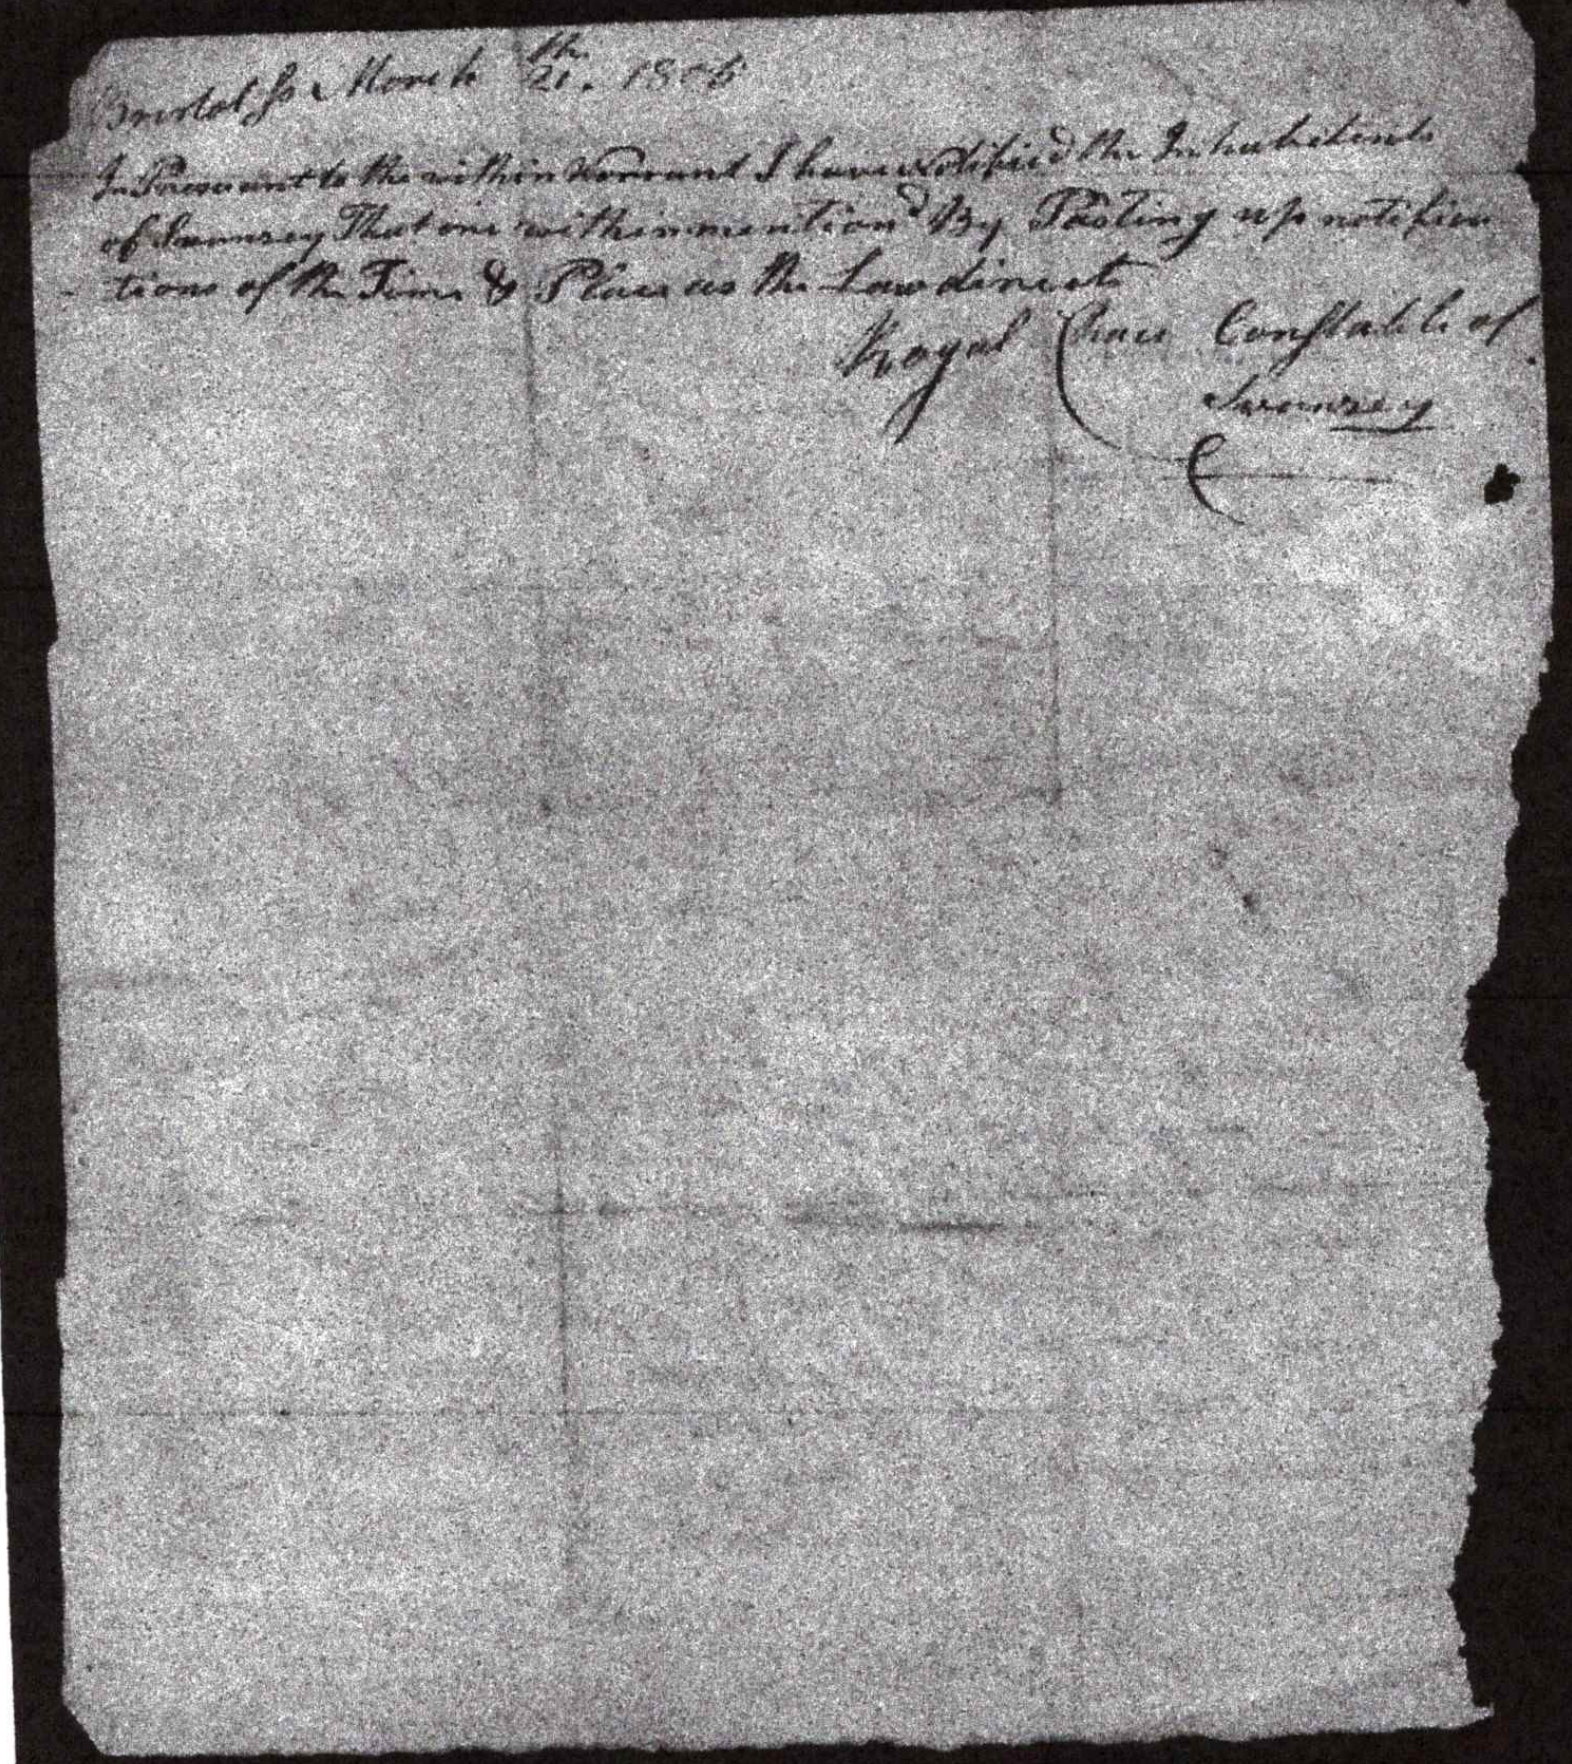 Bristol ss March 21.th 1806
In Pursuant to the within Warrant I have notified the Inhabitants
of Swanzey That are within mention'd By Posting up notifica
- tions of the Time & Place as the Law directs
Royal Chace Constable of
Swanzey